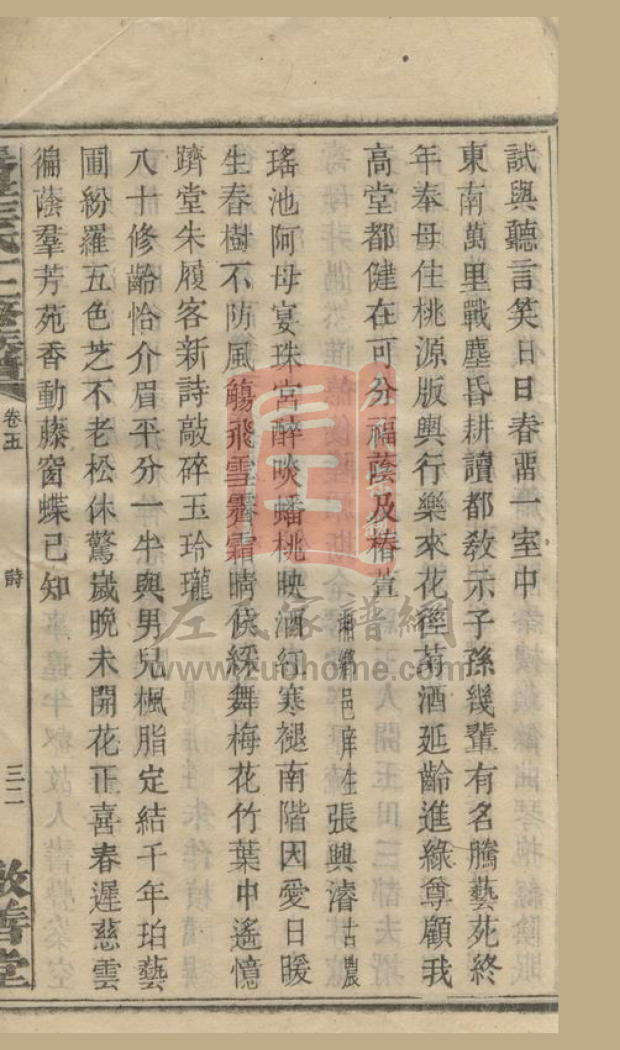 試與聽言笑日日春畱一室中
東南萬里戰塵昏耕讀都教示子孫幾輩有名騰藝苑終
年奉母住桃源版輿行樂來花徑菊酒延齡進綠尊顧我
高堂都健在可分福蔭及椿萱
湘鄉邑庠生張興濬古農
瑤池阿母宴珠宮醉啖蟠桃映酒紅寒褪南階因愛日暖
生春樹不防風觴飛雪霽霜晴候綵舞梅花竹葉中遙憶
躋堂朱履客新詩敲碎玉玲瓏
八十修齡恰介眉平分一半與男兒楓脂定結千年珀藝
圃紛羅五色芝不老松休驚嵗晚未開花正喜春遲慈雲
徧蔭羣芳苑香動藤窗蝶已知
卷五
詩
三二
敦善堂
左氏家譜網
www.zuohome.com